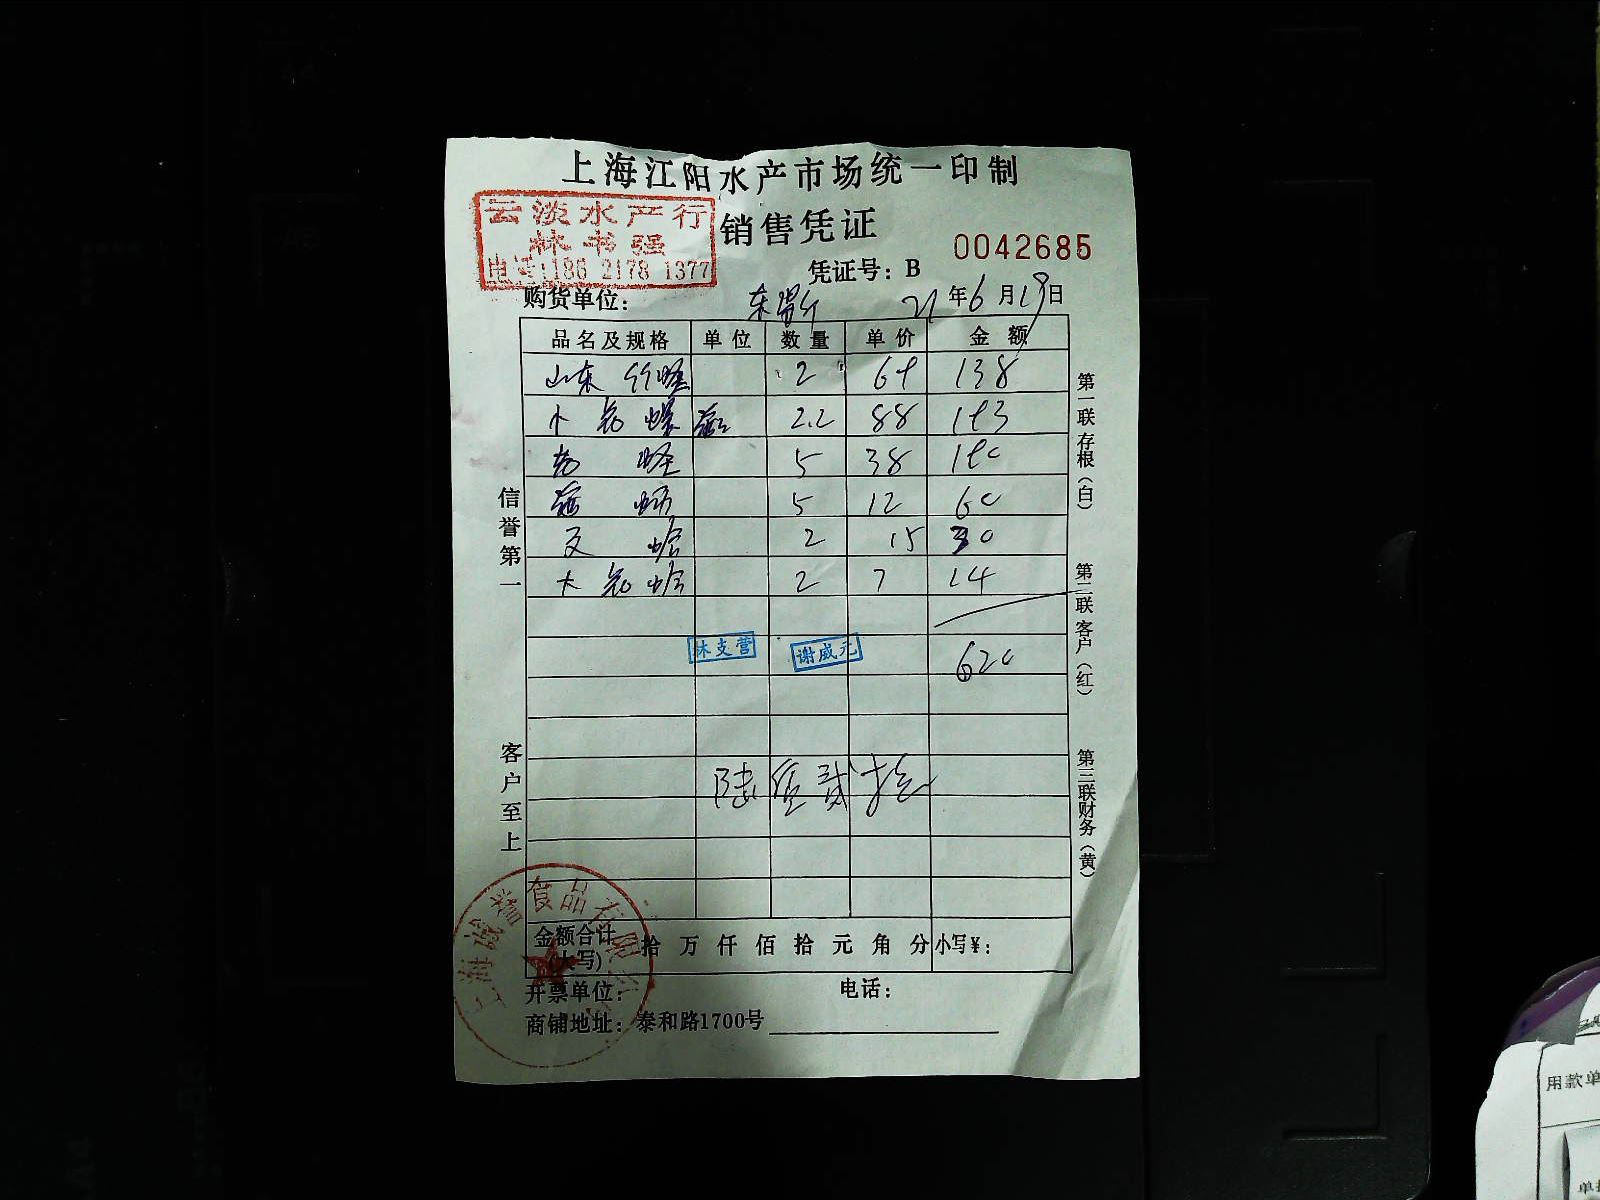 上海江阳水产市场统一印制
云淡水产行
林书强
电话:186 2178 1377
销售凭证
凭证号：B 0042685
购货单位： 21年6月19日
品名及规格 单位 数量 单价 金额
山东竹蛏 2 69 138
卜克螺 2.2 88 193
蛏 5 38 190
5 12 60
文蛤 2 15 30
大克蛤 2 7 14
林支营 谢威元 620
陆佰贰拾
金额合计(大写) 拾万仟佰拾元角分 小写¥：
开票单位： 电话：
商铺地址：泰和路1700号
上海诚誉食品有限公
信誉第一
客户至上
第一联存根（白）
第二联客户（红）
第三联财务（黄）
用款单